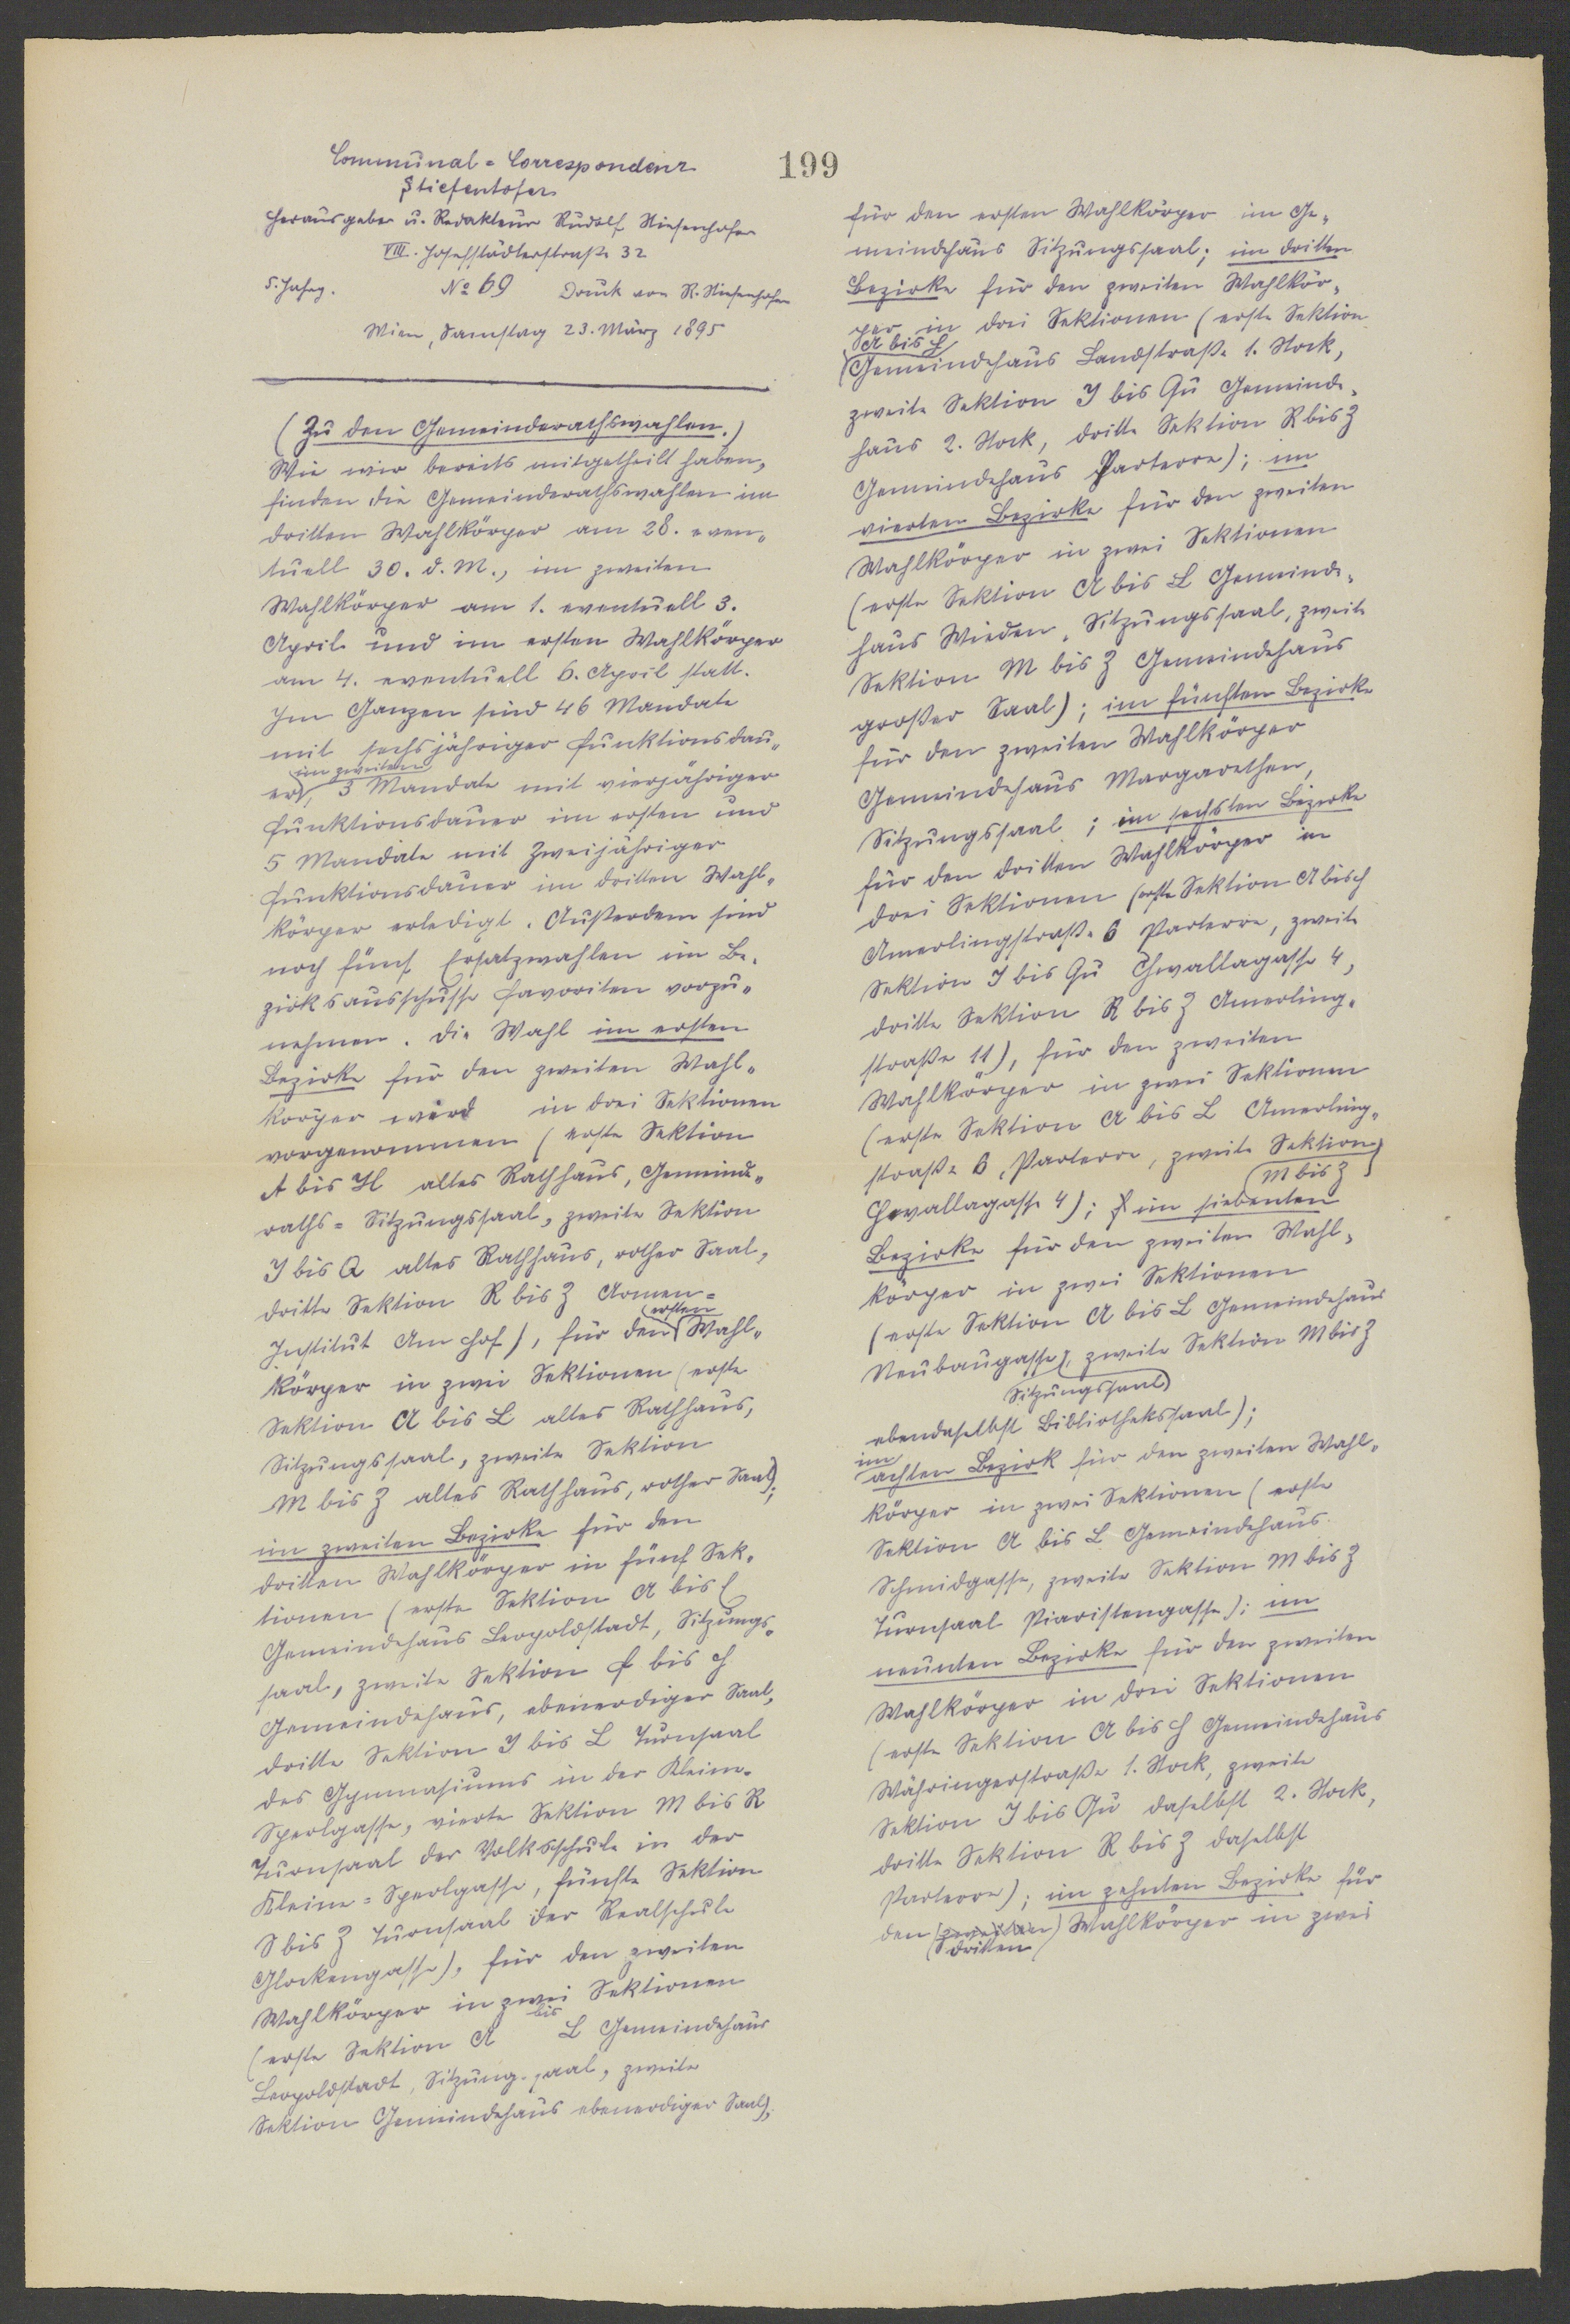 199
Communal-Correspondenz
Stiefenhofer
Herausgeber u. Redakteur Rudolf Stiefenhofer
VIII. Josefstädterstraße 32
5. Jahrg. No 69 Druck von R. Stiefenhofer
Wien, Samstag 23. März 1895
(Zu den Gemeinderathswahlen.)
Wie wir bereits mitgetheilt haben,
finden die Gemeinderathswahlen im
dritten Wahlkörper am 28. even-
tuell 30. d. M., im zweiten
Wahlkörper am 1. eventuell 3.
April und im ersten Wahlkörper
am 4. eventuell 6. April statt.
Im Ganzen sind 46 Mandate
mit sechsjähriger Funktionsdau-
er im zweiten, 3 Mandate mit vierjähriger
Funktionsdauer im ersten und
5 Mandate mit zweijähriger
Funktionsdauer im dritten Wahl-
körper erledigt. Außerdem sind
noch fünf Ersatzwahlen im Be-
zirksausschusse Favoriten vorzu-
nehmen. Die Wahl im ersten
Bezirke für den zweiten Wahl-
körper wird in drei Sektionen
vorgenommen (erste Sektion
A bis H altes Rathhaus, Gemeinde-
raths-Sitzungssaal, zweite Sektion
I bis Q altes Rathhaus, rother Saal,
dritte Sektion R bis Z Armen-
Institut Am Hof), für den ersten Wahl-
körper in zwei Sektionen (erste
Sektion A bis L altes Rathhaus,
Sitzungssaal, zweite Sektion
M bis Z altes Rathhaus, rother Saal);
im zweiten Bezirke für den
dritten Wahlkörper in fünf Sek-
tionen (erste Sektion A bis E
Gemeindehaus Leopoldstadt, Sitzungs-
saal, zweite Sektion F bis H
Gemeindehaus, ebenerdiger Saal,
dritte Sektion I bis L Turnsaal
des Gymnasiums in der Kleine-
Sperlgasse, vierte Sektion M bis R
Turnsaal der Volksschule in der
Kleine-Sperlgasse, fünfte Sektion
S bis Z Turnsaal der Realschule
Glockengasse), für den zweiten
Wahlkörper in zwei Sektionen
(erste Sektion A bis L Gemeindehaus
Leopoldstadt, Sitzungssaal, zweite
Sektion Gemeindehaus ebenerdiger Saal);
für den ersten Wahlkörper im Ge-
meindehaus Sitzungssaal; im dritten
Bezirke für den zweiten Wahlkör-
per in drei Sektionen (erste Sektion
A bis H Gemeindehaus Landstraße 1. Stock,
zweite Sektion I bis Qu Gemeinde-
haus 2. Stock, dritte Sektion R bis Z
Gemeindehaus Parterre); im
vierten Bezirke für den zweiten
Wahlkörper in zwei Sektionen
(erste Sektion A bis L Gemeinde-
haus Wieden, Sitzungssaal, zweite
Sektion M bis Z Gemeindehaus
großer Saal); im fünften Bezirke
für den zweiten Wahlkörper
Gemeindehaus Margarethen,
Sitzungssaal; im sechsten Bezirke
für den dritten Wahlkörper in
drei Sektionen (erste Sektion A bis H
Amerlingstraße 6 Parterre, zweite
Sektion I bis Qu Corvallagasse 4,
dritte Sektion R bis Z Amerling-
straße 11), für den zweiten
Wahlkörper in zwei Sektionen
(erste Sektion A bis L Amerling-
straße 6, Parterre, zweite Sektion M bis Z
4); im siebenten
Bezirke für den zweiten Wahl-
körper in zwei Sektionen
(erste Sektion A bis L Gemeindehaus
Neubaugasse Sitzungssaal, zweite Sektion M bis Z
ebendaselbst Bibliothekssaal);
im achten Bezirk für den zweiten Wahl-
körper in zwei Sektionen (erste
Sektion A bis L Gemeindehaus
Schmidgasse, zweite Sektion M bis Z
Turnsaal Piaristengasse); im
neunten Bezirke für den zweiten
Wahlkörper in drei Sektionen
(erste Sektion A bis H Gemeindehaus
Währingerstraße 1. Stock, zweite
Sektion I bis Qu daselbst 2. Stock,
dritte Sektion R bis Z daselbst
Parterre); im zehnten Bezirke für
den dritten Wahlkörper in zwei